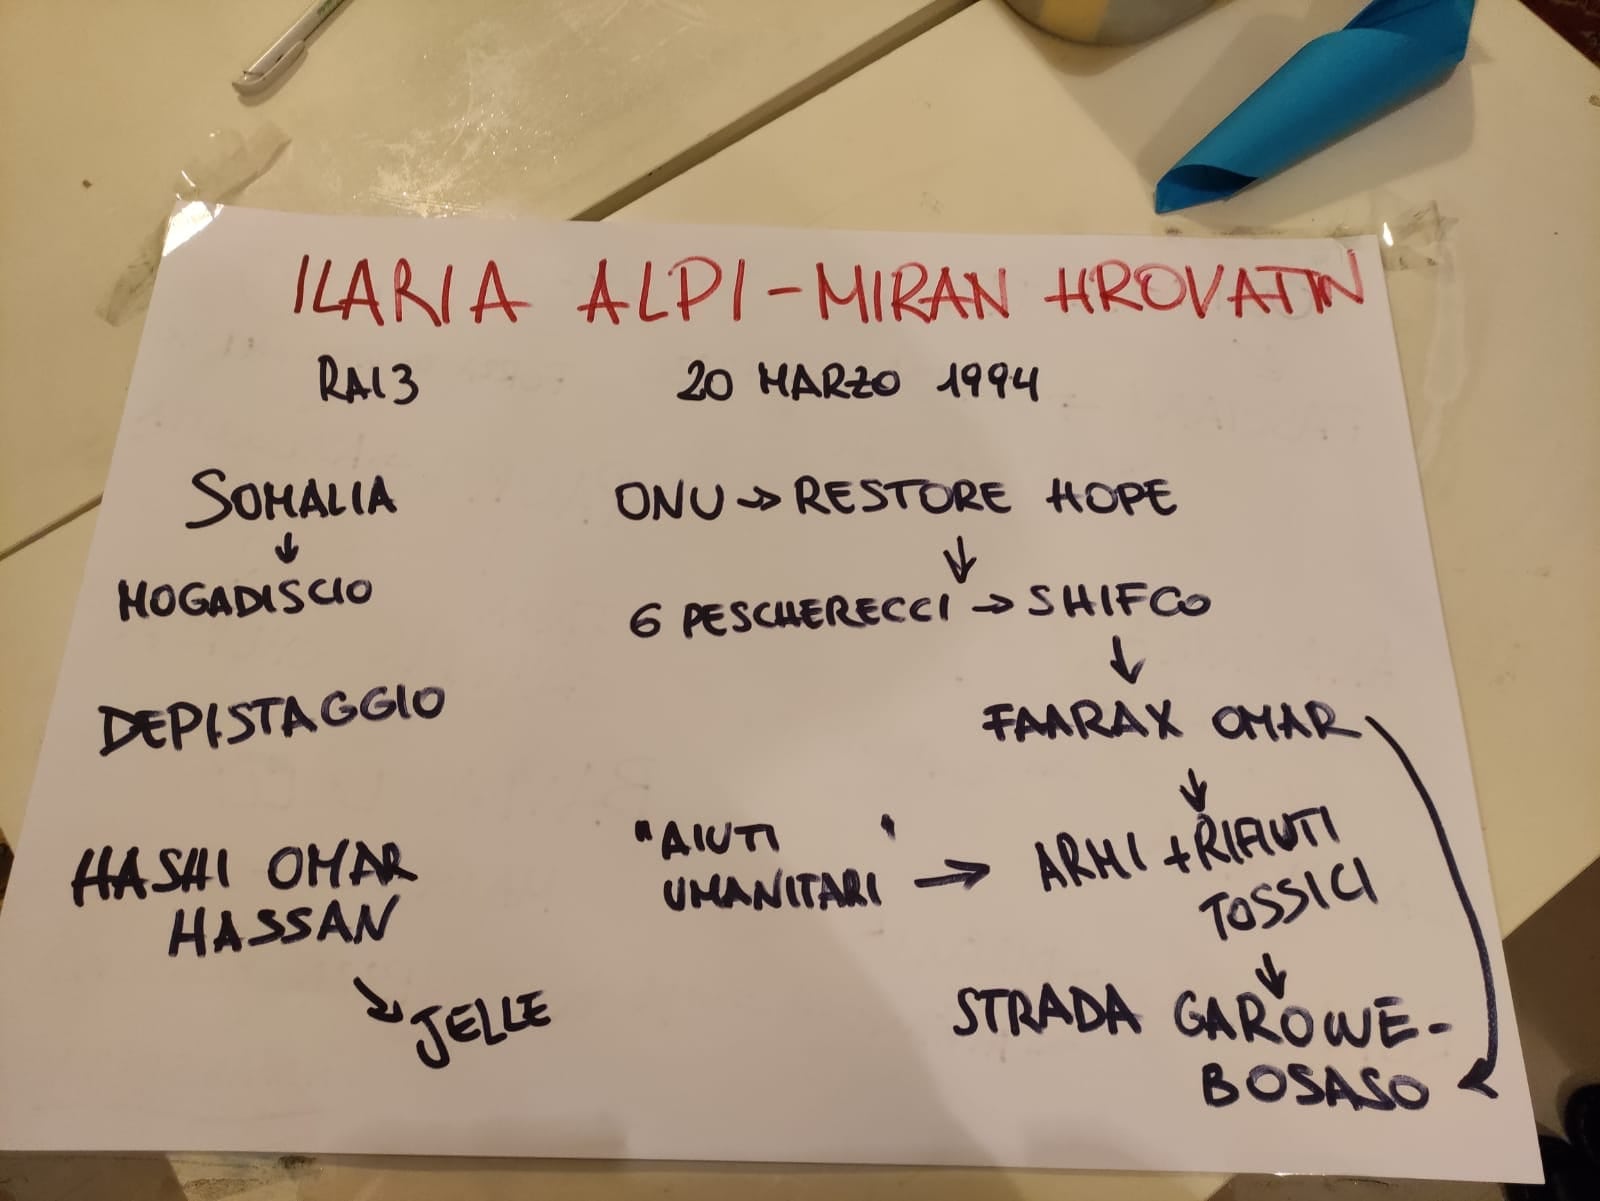 ILARIA ALPI - MIRAN HROVATIN
RAI3
20 MARZO 1994
SOMALIA
↓
MOGADISCIO
DEPISTAGGIO
HASHI OMAR
HASSAN
→ JELLE
ONU → RESTORE HOPE
↓
6 PESCHERECCI → SHIFCO
↓
FAARAX OMAR
↓
"AIUTI
UMANITARI" → ARMI + RIFIUTI
TOSSICI
↓
STRADA GAROWE-
BOSASO